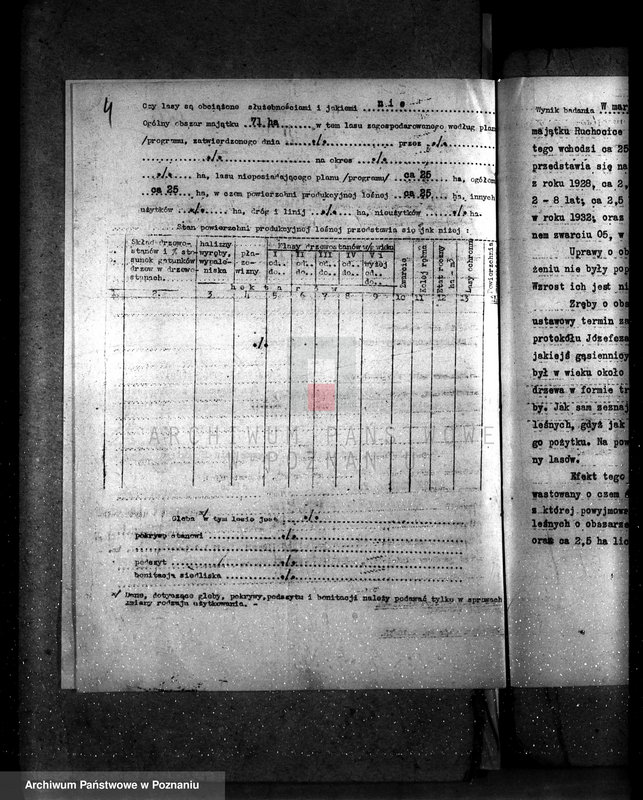 4
Czy lasy są obciążone służebnościami i jakiemi ... nie ...
Ogólny obszar majątku 71 ha w tem lasu zagospodarowanego według planu
/programu, zatwierdzonego dnia ./. przez ./.
./. na okres ./.
./. ha, lasu nieposiadającego planu /programu/ ca 25 ha, ogółem
ca 25 ha, w czem powierzchni produkcyjnej leśnej ca 25 ha, innych
użytków ./. ha, dróg i linij ./. ha, nieużytków ./. ha.
Stan powierzchni produkcyjnej leśnej przedstawia się jak niżej :
Skład drzewo-
stanów i % sto-
sunek gatunków
drzew w drzewo-
stanach.
halizny
wyręby,
wypale-
niska
pła-
zo-
wizny
Klasy drzewostanów wg wieku
I II III IV VI
od.. od.. od.. od.. wyżej
do.. do.. do.. do.. od..
do..
Zwarcie
Kolej rębna
Etat roczny
ha - m3
Lasy ochronne
Powierzchnia
hektarów
2. 3. 4. 5. 6. 7. 8. 9. 10 11 12 13
./.
Gleba x/ w tym lesie jest ./.
pokrywę stanowi ./.
podszyt ./.
bonitacja siedliska ./.
x/ Dane, dotyczące gleby, pokrywy, podszytu i bonitacji należy podawać tylko w sprawach
zmiany rodzaju użytkowania. -
Wynik badania W mar
majątku Ruchocice
tego wchodzi ca 25
przedstawia się na
z roku 1928, ca 2,
2 - 8 lat; ca 2,5
w roku 1932; oraz
nem zwarciu 05, w
Uprawy o ob
żeniu nie były pop
Wzrost ich jest ni
Zręby o oba
ustawowy termin za
protokółu Józefcza
jakiejś gąsiennicy
był w wieku około
drzewa w formie tr
by. Jak sam zeznaj
leśnych, gdyż jak
go pożytku. Na pow
ny lasów.
Efekt tego
wastowany o czem
z której powyjmowa
leśnych o obszarze
oraz ca 2,5 ha lic
ARCHIWUM PAŃSTWOWE
W POZNANIU
Archiwum Państwowe w Poznaniu